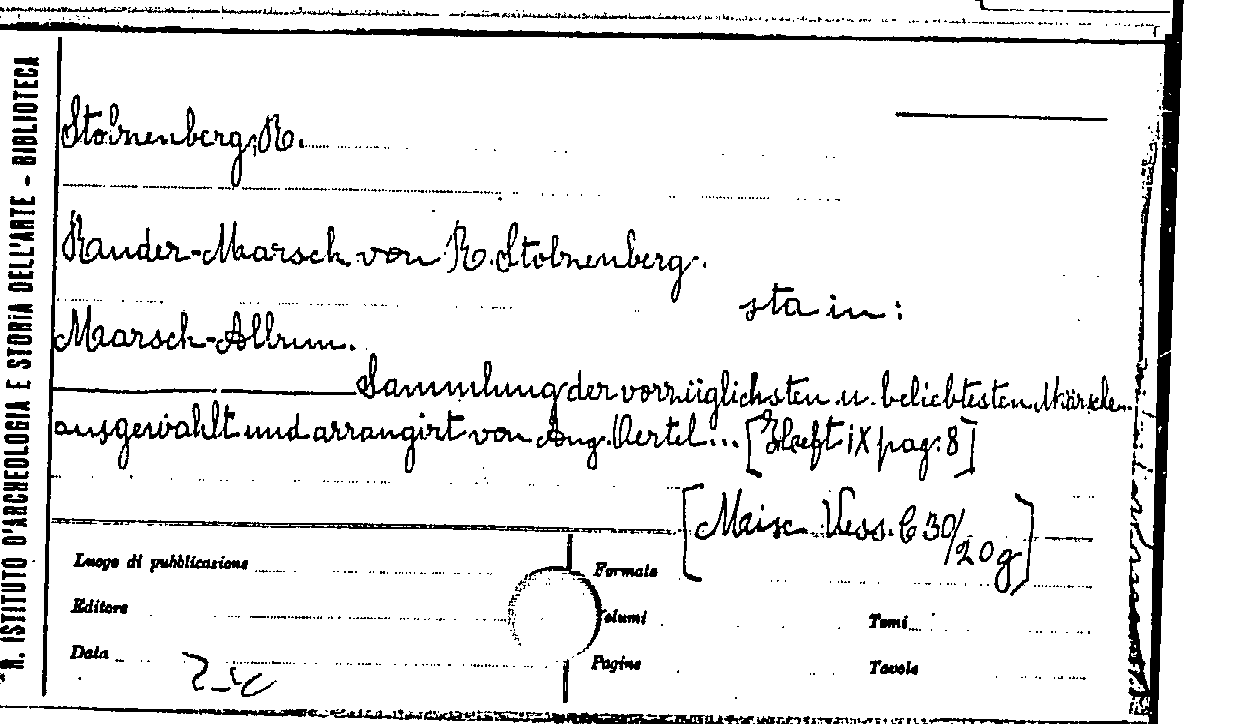 R. ISTITUTO D'ARCHEOLOGIA E STORIA DELL'ARTE - BIBLIOTECA
Stolzenberg, R.
Kander-Marsch von R. Stolzenberg.
sta in:
Marsch-Album.
Sammlung der vorzüglichsten u. beliebtesten Märsche
ausgewählt und arrangirt von Aug. Oertel... [Heft IX pag: 8]
[Misc. Vess. C 30/20 g]
Luogo di pubblicazione
Formato
Editore
Volumi
Tomi
Data
Pagine
Tavole